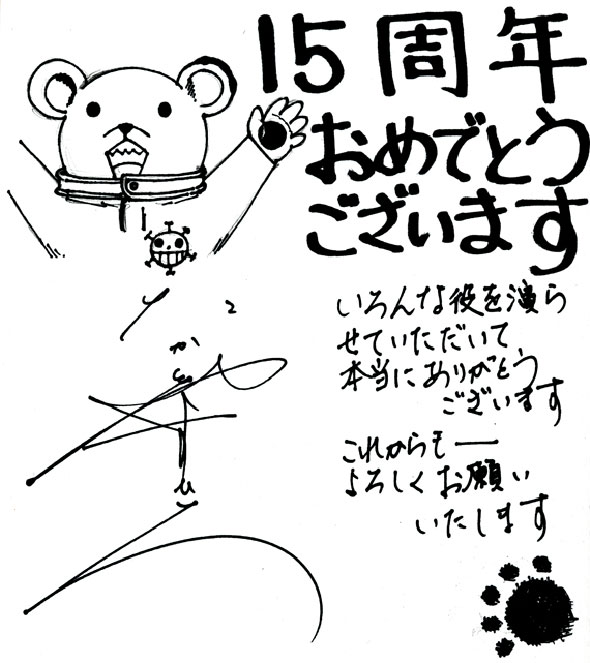 15周年
おめでとう
ございます
いろんな役を演ら
せていただいて、
本当にありがとう
ございます
これからもー
よろしくお願い
いたします